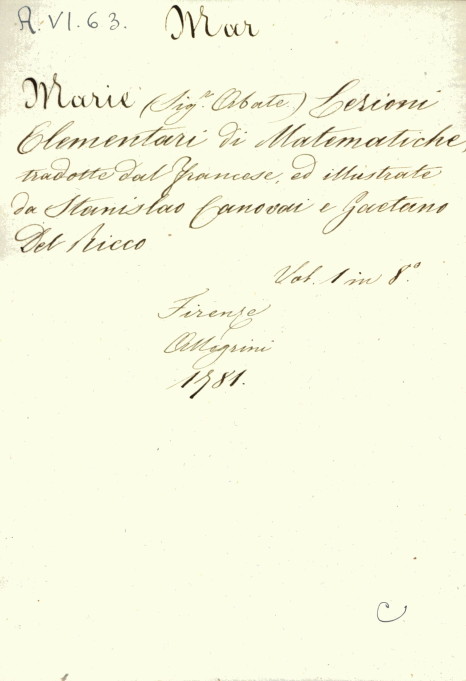 A.VI.63. Mar
Marie (Sig.r Abate.) Lezioni
Elementari di Matematiche,
tradotte dal francese, ed illustrate
da Stanislao Canovai e Gaetano
Del Ricco
Vol. 1 in 8.o
Firenze
Allegrini
1781.
C